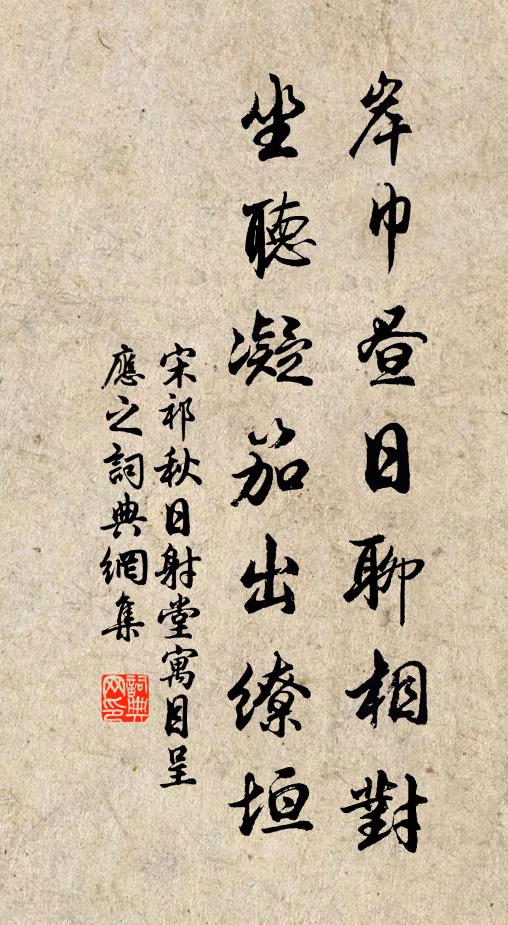 岸巾昼日聊相對
坐聽凝笳出繚垣
宋祁秋日射堂寓目呈
應之詞典網集
詞典
网印